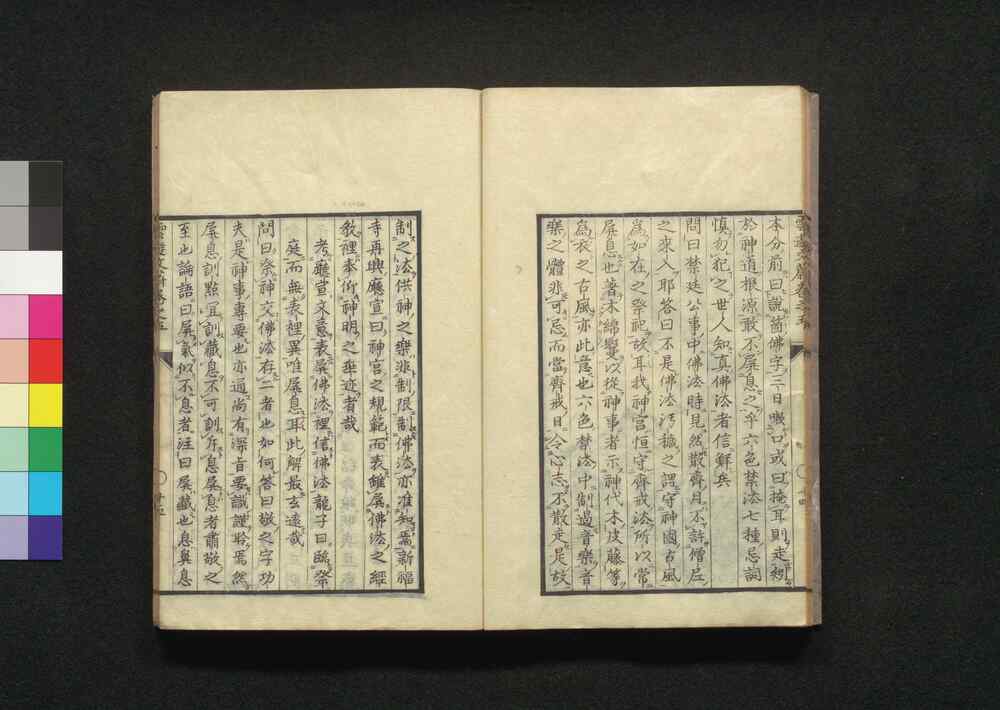 本分前曰説箇佛字三日嗽口或曰掩耳則走矧
於神道根源敢不屏息之乎六色禁法七種忌詞
慎勿犯之世人知真佛法者信鮮矣
問曰禁廷公事中佛法時見然散齊月不許僧尼
之來入耶答曰不是佛法汚穢之謂守神國古風
爲如在之祭祀故耳我神宮恒守齊戒法所以常
屏息也著木綿鬘以從神事者示神代木皮藤等
爲衣之古風亦此意也六色禁法中制過音樂音
樂之體非可忌而當齊戒日令心志不散走是故
制之法供神之樂非制限制佛法亦准知焉新福
寺再興廳宣曰神宮之規範而表雖屏佛法之經
教裡奉仰神明之垂迹者哉
考廳宣文意表屏佛法裡信佛法龍子曰臨祭
庭而無表裡異唯屏息耳此解最玄遠哉
問曰祭神交佛法存二者也如何答曰敬之字功
夫是神事專要也亦過尚有深旨要識謹聆焉然
屏息訓點宜訓藏息不可訓斥息屏息者肅敬之
至也論語曰屏氣似不息者注曰屏藏也息鼻息